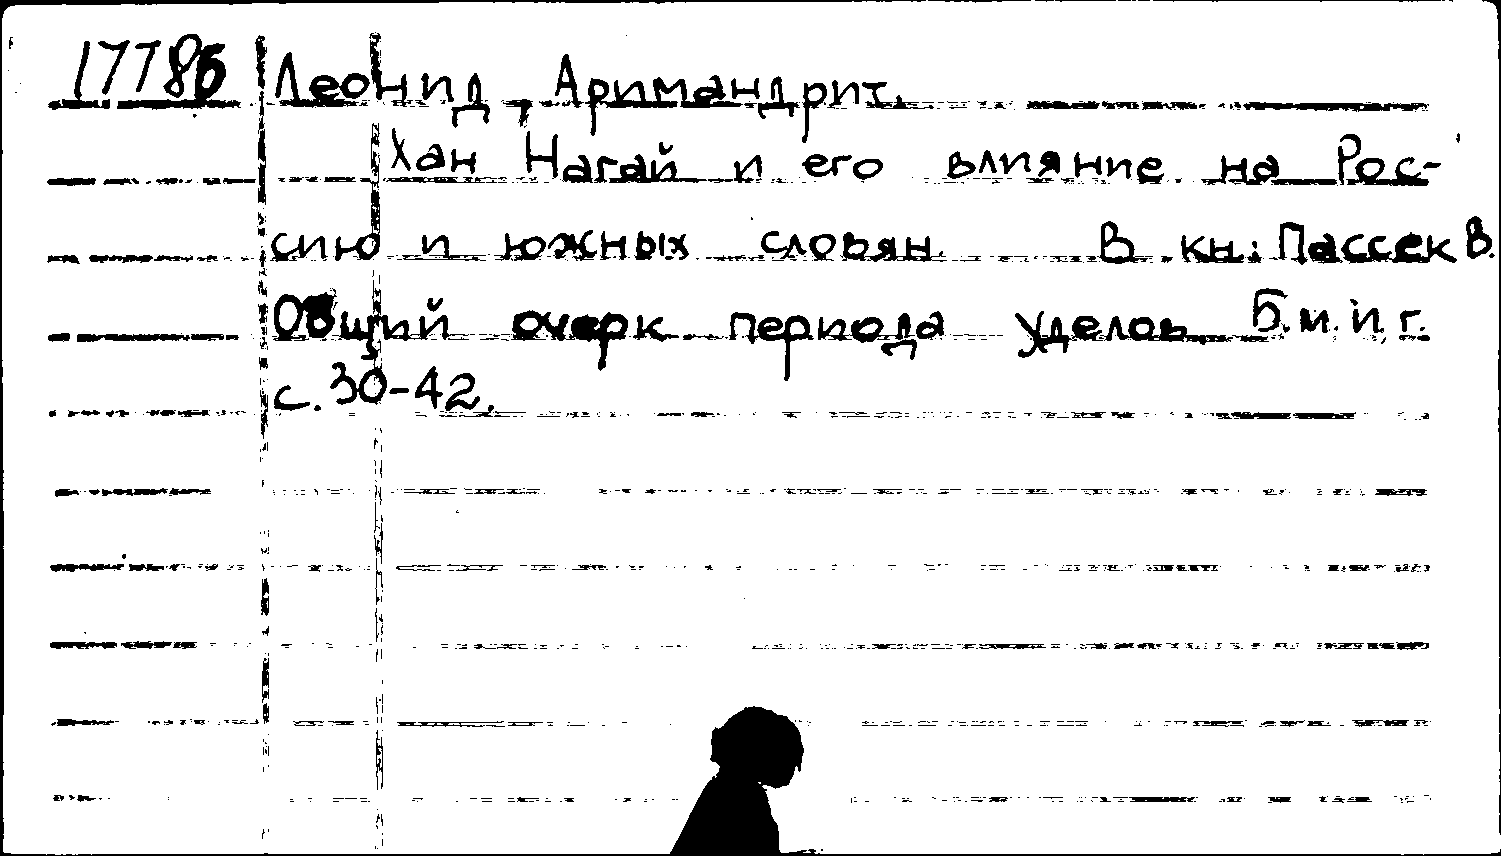 17786 Леонид, Аримандрит.
Хан Нагай и его влияние на Рос-
сию и южных словян. В кн: Пассек В.
Общий очерк периода уделов Б.м.и.г.
с. 30-42.